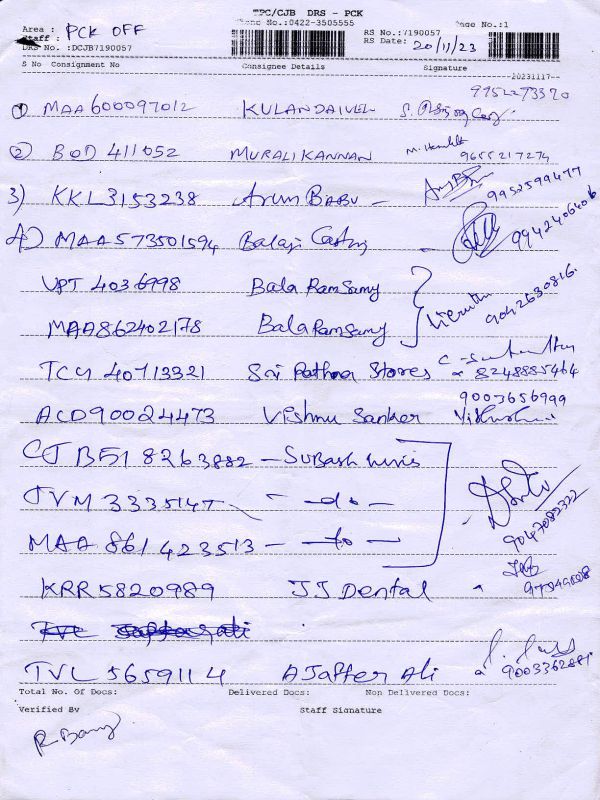 TPC/CJB DRS - PCK
Phone No.:0422-3505555
Page No.:1
Area : PCK OFF
Staff :
RS No.:7190057
DRS No. :DCJB7190057
RS Date: 20/11/23
S No Consignment No Consignee Details Signature
--20231117--
9952273320
① MAA600097012 KULANDAIVEL
② BOD 411052 MURALIKANNAN 9655217274
3) KKL3153238 Arun BABU - 9952599477
4) MAA573501594 Balaji Casting - 9942406406
VPT 4036998 Bala Ramsamy
MAA862402178 Bala Ramsamy 9042630816.
TCY 40713321 Sri Rathna Stores 8248885464
9003656999
ACD90024473 Vishnu Sanker
CJB518263882 - Subash
TVM 3335147 - - do -
MAA 861423513 - - do - 9047082322
KRR5820989 JJ Dental
TVL 5659114 A Jaffer Ali
Total No. Of Docs: Delivered Docs: Non Delivered Docs:
Verified By Staff Signature